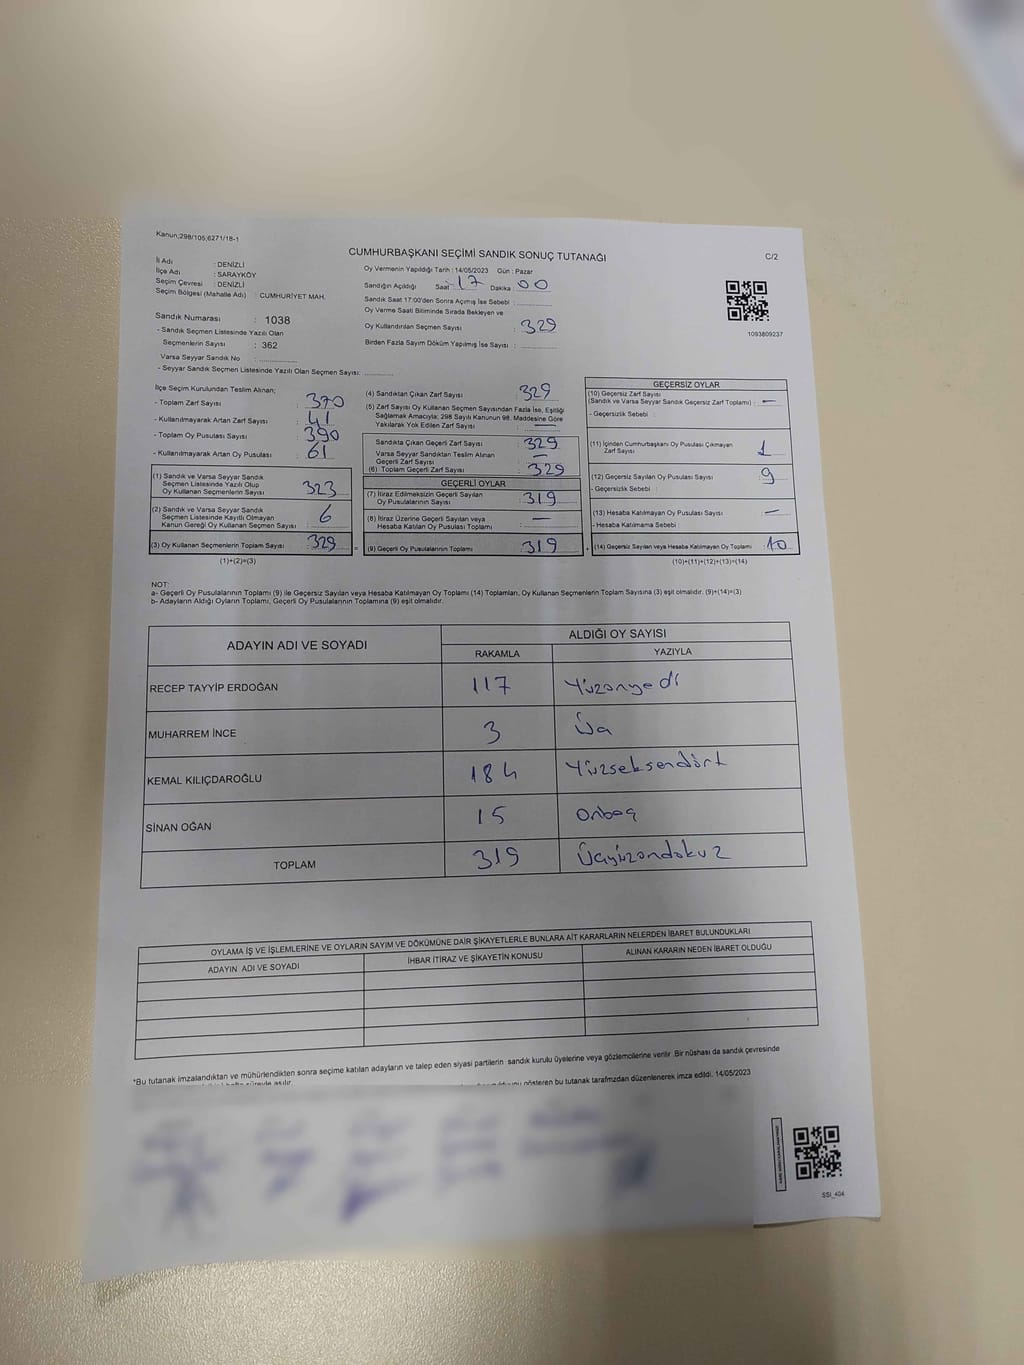 Kanun;298/105;6271/18-1
CUMHURBAŞKANI SEÇİMİ SANDIK SONUÇ TUTANAĞI
C/2
İl Adı : DENİZLİ
İlçe Adı : SARAYKÖY
Seçim Çevresi : DENİZLİ
Seçim Bölgesi (Mahalle Adı) : CUMHURİYET MAH.
Sandık Numarası : 1038
- Sandık Seçmen Listesinde Yazılı Olan
Seçmenlerin Sayısı : 362
Varsa Seyyar Sandık No :
- Seyyar Sandık Seçmen Listesinde Yazılı Olan Seçmen Sayısı:
Oy Vermenin Yapıldığı Tarih : 14/05/2023 Gün : Pazar
Sandığın Açıldığı Saat : 17 Dakika : 00
Sandık Saat 17:00'den Sonra Açımış İse Sebebi :
Oy Verme Saati Bitiminde Sırada Bekleyen ve
Oy Kullandırılan Seçmen Sayısı : 329
Birden Fazla Sayım Döküm Yapılmış İse Sayısı :
1093809237
İlçe Seçim Kurulundan Teslim Alınan;
- Toplam Zarf Sayısı : 370
- Kullanılmayarak Artan Zarf Sayısı : 41
- Toplam Oy Pusulası Sayısı : 390
- Kullanılmayarak Artan Oy Pusulası : 61
(1) Sandık ve Varsa Seyyar Sandık
Seçmen Listesinde Yazılı Olup
Oy Kullanan Seçmenlerin Sayısı : 323
(2) Sandık ve Varsa Seyyar Sandık
Seçmen Listesinde Kayıtlı Olmayan
Kanun Gereği Oy Kullanan Seçmen Sayısı : 6
(3) Oy Kullanan Seçmenlerin Toplam Sayısı : 329
(1)+(2)=(3)
(4) Sandıktan Çıkan Zarf Sayısı : 329
(5) Zarf Sayısı Oy Kullanan Seçmen Sayısından Fazla İse, Eşitliği
Sağlamak Amacıyla; 298 Sayılı Kanunun 98. Maddesine Göre
Yakılarak Yok Edilen Zarf Sayısı : —
Sandıkta Çıkan Geçerli Zarf Sayısı : 329
Varsa Seyyar Sandıktan Teslim Alınan
Geçerli Zarf Sayısı : —
(6) Toplam Geçerli Zarf Sayısı : 329
GEÇERLİ OYLAR
(7) İtiraz Edilmeksizin Geçerli Sayılan
Oy Pusulalarının Sayısı : 319
(8) İtiraz Üzerine Geçerli Sayılan veya
Hesaba Katılan Oy Pusulası Toplamı : —
= (9) Geçerli Oy Pusulalarının Toplamı : 319
GEÇERSİZ OYLAR
(10) Geçersiz Zarf Sayısı
(Sandık ve Varsa Seyyar Sandık Geçersiz Zarf Toplamı) : —
- Geçersizlik Sebebi :
(11) İçinden Cumhurbaşkanı Oy Pusulası Çıkmayan
Zarf Sayısı : 1
(12) Geçersiz Sayılan Oy Pusulası Sayısı : 9
- Geçersizlik Sebebi :
(13) Hesaba Katılmayan Oy Pusulası Sayısı : —
- Hesaba Katılmama Sebebi :
+ (14) Geçersiz Sayılan veya Hesaba Katılmayan Oy Toplamı : 10
(10)+(11)+(12)+(13)=(14)
NOT:
a- Geçerli Oy Pusulalarının Toplamı (9) ile Geçersiz Sayılan veya Hesaba Katılmayan Oy Toplamı (14) Toplamları, Oy Kullanan Seçmenlerin Toplam Sayısına (3) eşit olmalıdır. (9)+(14)=(3)
b- Adayların Aldığı Oyların Toplamı, Geçerli Oy Pusulalarının Toplamına (9) eşit olmalıdır.
ADAYIN ADI VE SOYADI
ALDIĞI OY SAYISI
RAKAMLA YAZIYLA
RECEP TAYYİP ERDOĞAN 117 Yüzonyedi
MUHARREM İNCE 3 Üç
KEMAL KILIÇDAROĞLU 184 Yüzseksendört
SİNAN OĞAN 15 Onbeş
TOPLAM 319 Üçyüzondokuz
OYLAMA İŞ VE İŞLEMLERİNE VE OYLARIN SAYIM VE DÖKÜMÜNE DAİR ŞİKAYETLERLE BUNLARA AİT KARARLARIN NELERDEN İBARET BULUNDUKLARI
ADAYIN ADI VE SOYADI İHBAR İTİRAZ VE ŞİKAYETİN KONUSU ALINAN KARARIN NEDEN İBARET OLDUĞU
*Bu tutanak imzalandıktan ve mühürlendikten sonra seçime katılan adayların ve talep eden siyasi partilerin sandık kurulu üyelerine veya gözlemcilerine verilir. Bir nüshası da sandık çevresinde
gösteren bu tutanak tarafımızdan düzenlenerek imza edildi. 14/05/2023
SSI_404